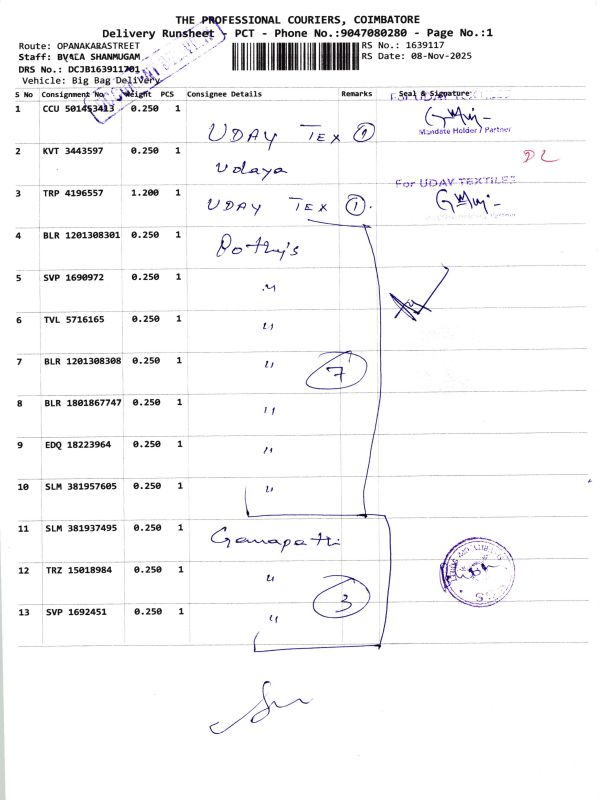 THE PROFESSIONAL COURIERS, COIMBATORE
Delivery Runsheet - PCT - Phone No.:9047080280 - Page No.:1
Route: OPANAKARASTREET
RS No.: 1639117
Staff: BVALA SHANMUGAM
RS Date: 08-Nov-2025
DRS No.: DCJB163911701
Vehicle: Big Bag Delivery
S No Consignment No Weight PCS Consignee Details Remarks Seal & Signature
1 CCU 501453413 0.250 1 UDAY TEX 1
Mandate Holder / Partner
2 KVT 3443597 0.250 1 Udaya
DL
For UDAY TEXTILES
3 TRP 4196557 1.200 1 UDAY TEX 1
4 BLR 1201308301 0.250 1 Pothy's
5 SVP 1690972 0.250 1 "
6 TVL 5716165 0.250 1 "
7 BLR 1201308308 0.250 1 " 7
8 BLR 1801867747 0.250 1 "
9 EDQ 18223964 0.250 1 "
10 SLM 381957605 0.250 1 "
11 SLM 381937495 0.250 1 Ganapathi
12 TRZ 15018984 0.250 1 " 3
13 SVP 1692451 0.250 1 "